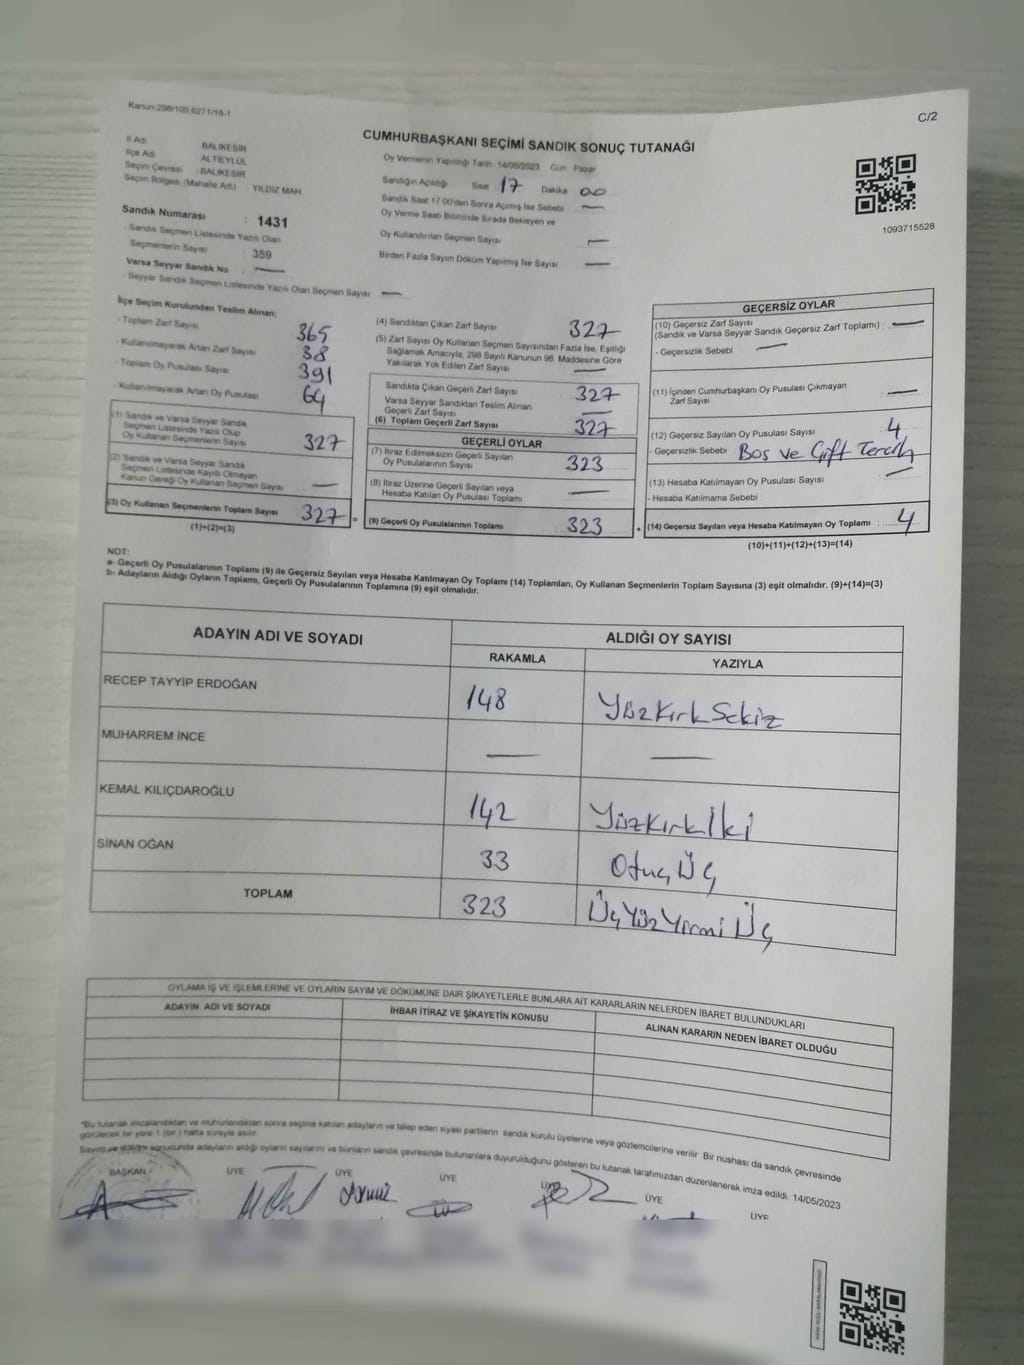 Kanun:298/105 6271/18-1
C/2
CUMHURBAŞKANI SEÇİMİ SANDIK SONUÇ TUTANAĞI
İl Adı: BALIKESİR
İlçe Adı: ALTIEYLÜL
Seçim Çevresi: BALIKESİR
Seçim Bölgesi (Mahalle Adı) YILDIZ MAH.
Oy Vermenin Yapıldığı Tarih: 14/05/2023 Gün: Pazar
Sandığın Açıldığı Saat 17 Dakika 00
Sandık Saat 17:00'den Sonra Açılmış İse Sebebi —
Oy Verme Saati Bitiminde Sırada Bekleyen ve
Oy Kullandırılan Seçmen Sayısı —
Birden Fazla Sayım Döküm Yapılmış İse Sayısı —
1093715528
Sandık Numarası : 1431
- Sandık Seçmen Listesinde Yazılı Olan
Seçmenlerin Sayısı : 359
Varsa Seyyar Sandık No : —
- Seyyar Sandık Seçmen Listesinde Yazılı Olan Seçmen Sayısı —
İlçe Seçim Kurulundan Teslim Alınan;
- Toplam Zarf Sayısı 365
- Kullanılmayarak Artan Zarf Sayısı 38
- Toplam Oy Pusulası Sayısı 391
- Kullanılmayarak Artan Oy Pusulası 64
(1) Sandık ve Varsa Seyyar Sandık
Seçmen Listesinde Yazılı Olup
Oy Kullanan Seçmenlerin Sayısı 327
(2) Sandık ve Varsa Seyyar Sandık
Seçmen Listesinde Kayıtlı Olmayan
Kanun Gereği Oy Kullanan Seçmen Sayısı —
(3) Oy Kullanan Seçmenlerin Toplam Sayısı 327
(1)+(2)=(3)
(4) Sandıktan Çıkan Zarf Sayısı 327
(5) Zarf Sayısı Oy Kullanan Seçmen Sayısından Fazla İse, Eşitliği
Sağlamak Amacıyla, 298 Sayılı Kanunun 98. Maddesine Göre
Yakılarak Yok Edilen Zarf Sayısı —
Sandıkta Çıkan Geçerli Zarf Sayısı 327
Varsa Seyyar Sandıktan Teslim Alınan
Geçerli Zarf Sayısı —
(6) Toplam Geçerli Zarf Sayısı 327
GEÇERLİ OYLAR
(7) İtiraz Edilmeksizin Geçerli Sayılan
Oy Pusulalarının Sayısı 323
(8) İtiraz Üzerine Geçerli Sayılan veya
Hesaba Katılan Oy Pusulası Toplamı —
= (9) Geçerli Oy Pusulalarının Toplamı 323
GEÇERSİZ OYLAR
(10) Geçersiz Zarf Sayısı
(Sandık ve Varsa Seyyar Sandık Geçersiz Zarf Toplamı) : —
- Geçersizlik Sebebi —
(11) İçinden Cumhurbaşkanı Oy Pusulası Çıkmayan
Zarf Sayısı —
(12) Geçersiz Sayılan Oy Pusulası Sayısı 4
- Geçersizlik Sebebi Boş ve Çift Tercih
(13) Hesaba Katılmayan Oy Pusulası Sayısı —
- Hesaba Katılmama Sebebi
+ (14) Geçersiz Sayılan veya Hesaba Katılmayan Oy Toplamı : 4
(10)+(11)+(12)+(13)=(14)
NOT:
a- Geçerli Oy Pusulalarının Toplamı (9) ile Geçersiz Sayılan veya Hesaba Katılmayan Oy Toplamı (14) Toplamları, Oy Kullanan Seçmenlerin Toplam Sayısına (3) eşit olmalıdır. (9)+(14)=(3)
b- Adayların Aldığı Oyların Toplamı, Geçerli Oy Pusulalarının Toplamına (9) eşit olmalıdır.
ADAYIN ADI VE SOYADI ALDIĞI OY SAYISI
RAKAMLA YAZIYLA
RECEP TAYYİP ERDOĞAN 148 YüzKırkSekiz
MUHARREM İNCE — —
KEMAL KILIÇDAROĞLU 142 Yüzkırkİki
SİNAN OĞAN 33 OtuzÜç
TOPLAM 323 ÜçYüzYirmiÜç
OYLAMA İŞ VE İŞLEMLERİNE VE OYLARIN SAYIM VE DÖKÜMÜNE DAİR ŞİKAYETLERLE BUNLARA AİT KARARLARIN NELERDEN İBARET BULUNDUKLARI
ADAYIN ADI VE SOYADI İHBAR İTİRAZ VE ŞİKAYETİN KONUSU ALINAN KARARIN NEDEN İBARET OLDUĞU
*Bu tutanak imzalandıktan ve mühürlendikten sonra seçime katılan adayların ve talep eden siyasi partilerin sandık kurulu üyelerine veya gözlemcilerine verilir. Bir nüshası da sandık çevresinde
görülecek bir yere 1 (bir) hafta süreyle asılır.
Sayım ve döküm sonucunda adayların aldığı oyların sayılarını ve bunların sandık çevresinde bulunanlara duyurulduğunu gösteren bu tutanak tarafımızdan düzenlenerek imza edildi. 14/05/2023
BAŞKAN ÜYE ÜYE ÜYE ÜYE ÜYE ÜYE